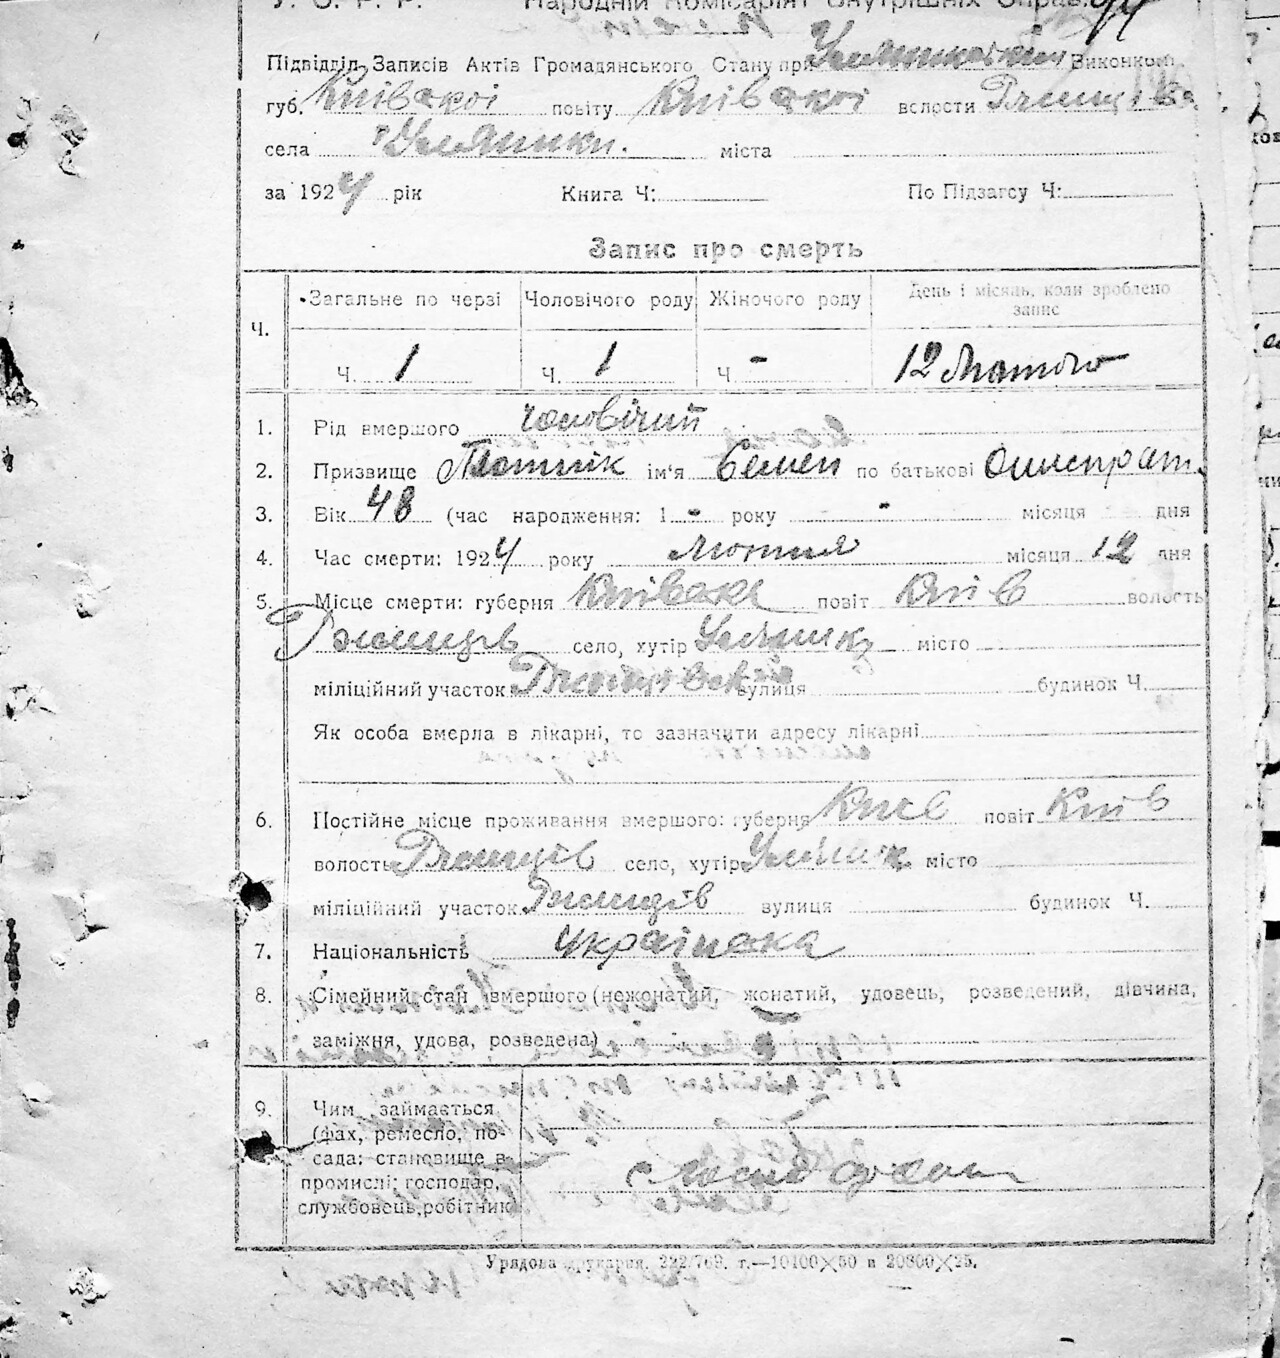 У. С. Р. Р. Народній Комісаріят Внутрішніх Справ.
Підвідділ Записів Актів Громадянського Стану при Уляниківськім Виконкомі
губ. Київської повіту Київської волости Ржищів
села Уляники. міста
за 1924 рік Книга Ч: По Підзагсу Ч:
Запис про смерть
Ч. Загальне по черзі Чоловічого роду Жіночого роду День і місяць, коли зроблено запис
Ч. 1 Ч. 1 Ч - 12 Лютого
1. Рід вмершого чоловічий
2. Призвище Плотнік ім'я Семен по батькові Олистрат.
3. Вік 48 (час народження: 1 - року - місяця дня
4. Час смерти: 1924 року Лютия місяця 12 дня
5. Місце смерти: губерня Київске повіт Київ волость
Ржищів село, хутір Уляники місто
міліційний участок Ржищівский вулиця будинок Ч.
Як особа вмерла в лікарні, то зазначити адресу лікарні
6. Постійне місце проживання вмершого: губерня Киев повіт Київ
волость Ржищів село, хутір Уляник місто
міліційний участок Ржищів вулиця будинок Ч.
7. Національність Українска
8. Сімейний стан вмершого (нежонатий, жонатий, удовець, розведений, дівчина,
заміжня, удова, розведена)
9. Чим займається
(фах, ремесло, по-
сада: становище в
промислі: господар,
службовець, робітник
Урядова друкарня. 222/768. т.—10100×50 и 20800×25.